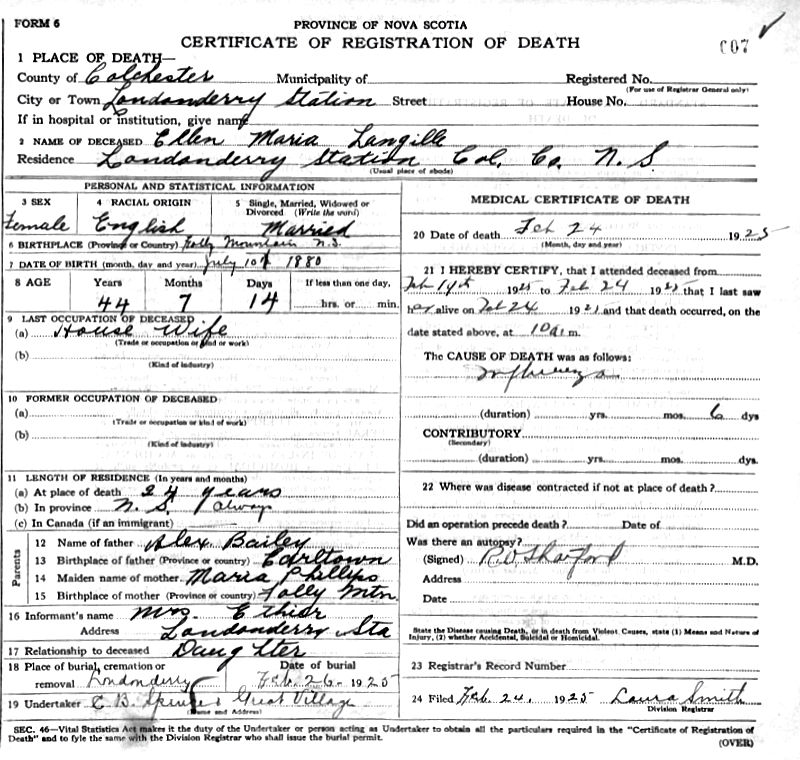 FORM 6
PROVINCE OF NOVA SCOTIA
CERTIFICATE OF REGISTRATION OF DEATH
007
1 PLACE OF DEATH—
County of Colchester Municipality of Registered No.
(For use of Registrar General only)
City or Town Londonderry Station Street House No.
If in hospital or institution, give name
2 NAME OF DECEASED Ellen Maria Langille
Residence Londonderry Station Col. Co. N. S.
(Usual place of abode)
PERSONAL AND STATISTICAL INFORMATION
3 SEX 4 RACIAL ORIGIN 5 Single, Married, Widowed or Divorced (Write the word)
Female English Married
6 BIRTHPLACE (Province or Country) Folly Mountain N.S.
7 DATE OF BIRTH (month, day and year) July 10th 1880
8 AGE Years Months Days If less than one day,
44 7 14 hrs. or min.
9 LAST OCCUPATION OF DECEASED
(a) House Wife
(Trade or occupation or kind or work)
(b)
(Kind of industry)
10 FORMER OCCUPATION OF DECEASED
(a)
(Trade or occupation or kind of work)
(b)
(Kind of industry)
11 LENGTH OF RESIDENCE (In years and months)
(a) At place of death 24 years
(b) In province N. S. always
(c) In Canada (if an immigrant)
Parents
12 Name of father Alex. Bailey
13 Birthplace of father (Province or country) Earltown
14 Maiden name of mother Maria Phillips
15 Birthplace of mother (Province or country) Folly Mtn.
16 Informant's name Mrs. Ethier
Address Londonderry Sta
17 Relationship to deceased Daughter
18 Place of burial, cremation or removal Londonderry Date of burial Feb. 26 - 1925
19 Undertaker C. B. Spencer Great Village
(Name and Address)
MEDICAL CERTIFICATE OF DEATH
20 Date of death Feb 24 1925
(Month, day and year)
21 I HEREBY CERTIFY, that I attended deceased from
Feb 19th 1925 to Feb 24 1925 that I last saw
her alive on Feb 24 192 and that death occurred, on the
date stated above, at 10 a.m.
The CAUSE OF DEATH was as follows:
Influenza
(duration) yrs. mos. 6 dys
CONTRIBUTORY
(Secondary)
(duration) yrs. mos. dys.
22 Where was disease contracted if not at place of death?
Did an operation precede death? Date of
Was there an autopsy?
(Signed) M.D.
Address
Date
State the Disease causing Death, or in death from Violent Causes, state (1) Means and Nature of
Injury, (2) whether Accidental, Suicidal or Homicidal.
23 Registrar's Record Number
24 Filed Feb. 24, 1925 Laura Smith
Division Registrar
SEC. 46—Vital Statistics Act makes it the duty of the Undertaker or person acting as Undertaker to obtain all the particulars required in the "Certificate of Registration of
Death" and to fyle the same with the Division Registrar who shall issue the burial permit.
(OVER)